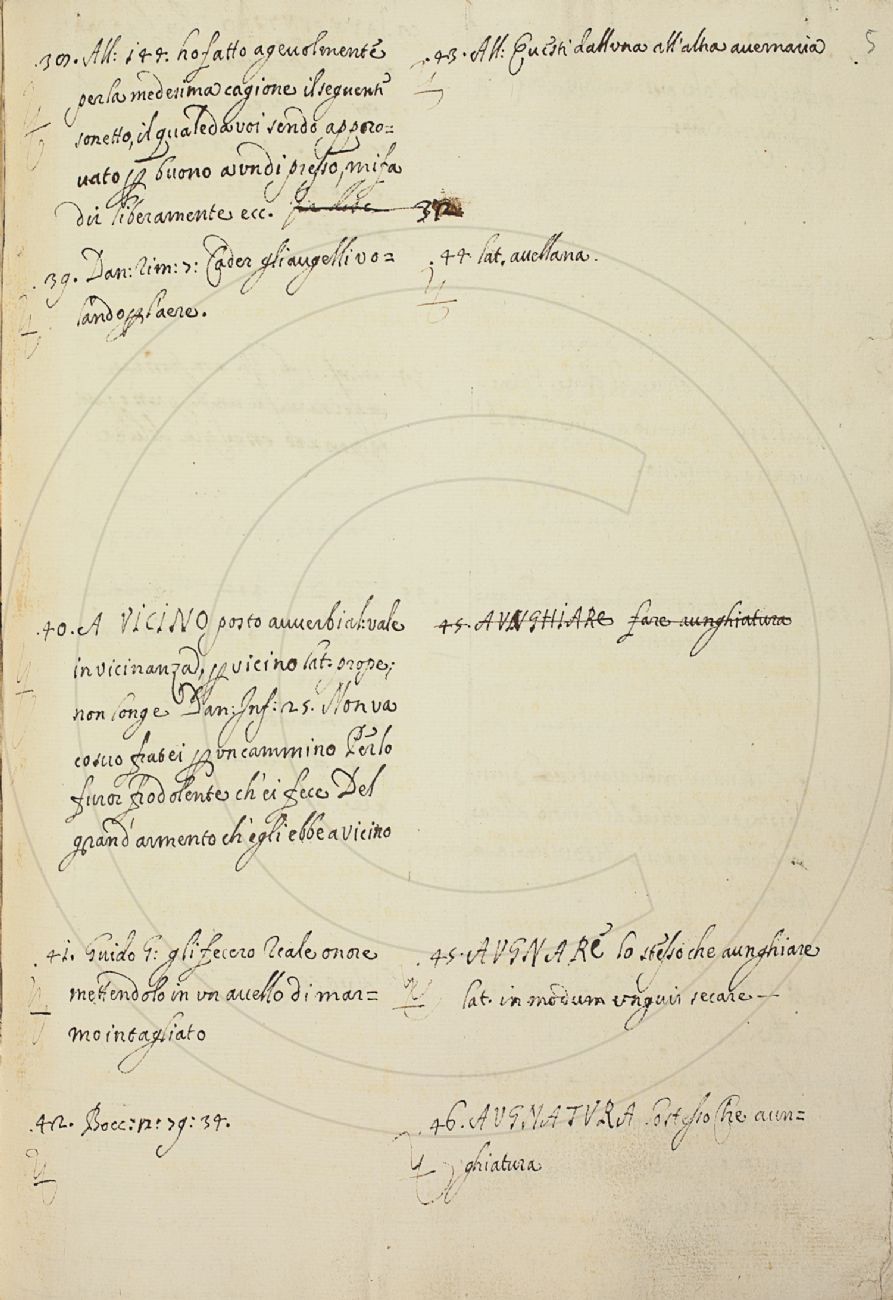 38. All: 144. ho fatto ageuolmente
per la medesima cagione il seguente
sonetto, il quale da voi sendo appro=
uato per buono a un di presso, mi fa
dir liberamente ecc.
39. Dan: rim: 7: Cader gli augelli vo=
lando per l'aere.
40. A VICINO posto auuerbial: vale
in vicinanza, per vicino lat: prope,
non longe Dan: Inf: 25. Non va
co suo fratei per un cammino Per lo
furor frodolente ch'ei fece Del
grand'armento ch'egli ebbe a vicino
41. Guido G: gli fecero reale onore
mettendolo in vn auello di mar=
mo intagliato
42. Bocc: n: 79: 34.
5
43. All: Questi dall'vna all'altra auemaria
44. lat. auellana.
45. AVNGHIARE fare aunghiatura
45. AVGNARE lo stesso che aunghiare
lat. in modum vnguis secare —
46. AVGNATVRA lo stesso che aun=
ghiatura